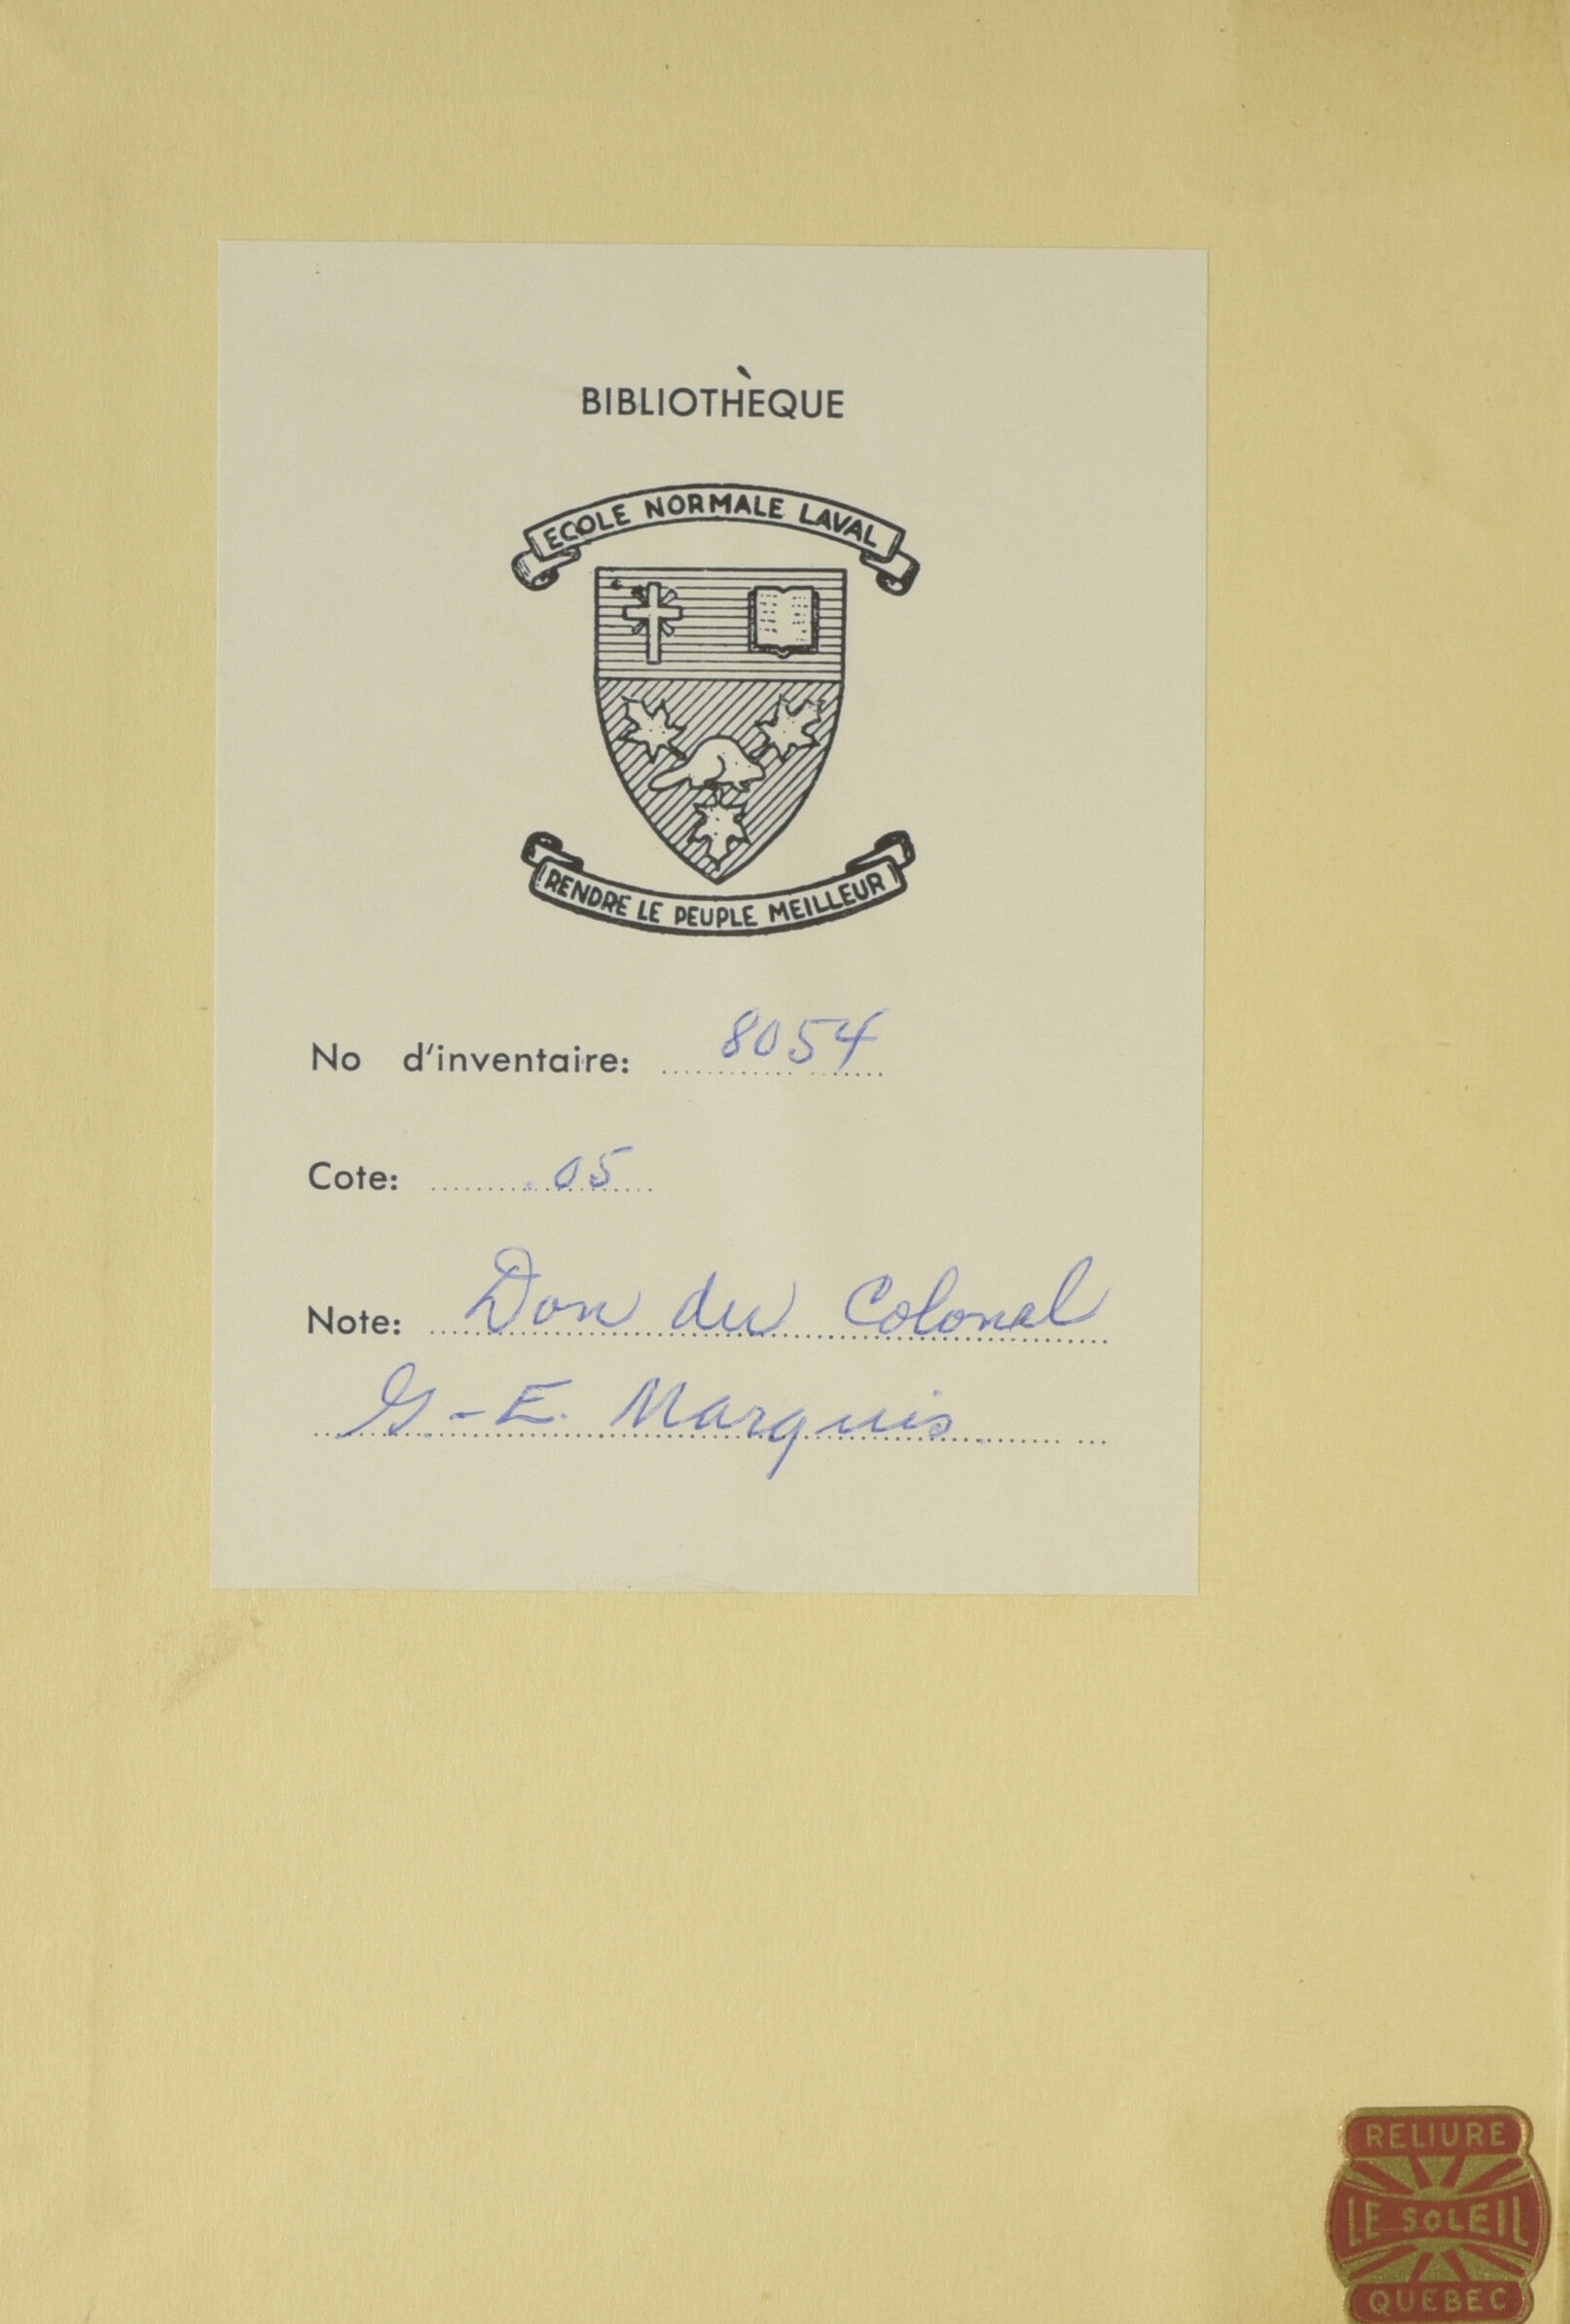 BIBLIOTHÈQUE
ECOLE NORMALE LAVAL
RENDRE LE PEUPLE MEILLEUR
No d'inventaire: 8054
Cote: .05
Note: Don du Colonel
G.-E. Marquis
RELIURE
LE SOLEIL
QUEBEC